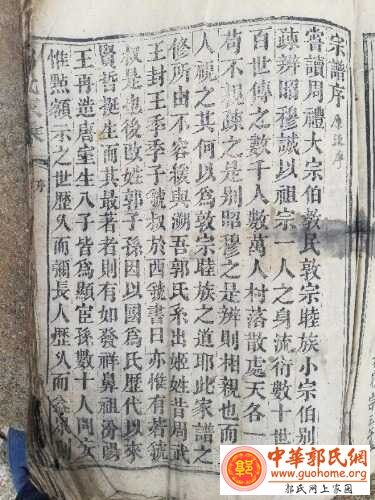 宗譜序 原譜序
嘗讀周禮大宗伯敦民敦宗睦族小宗伯別
疎辨昭穆誠以祖宗一人之身流衍數十世
百世傳之數千人數萬人村落散處天各一
苟不親疎之是別昭穆之是辨則相親也而
人視之其何以爲敦宗睦族之道耶此家譜之
修所由不容緩與溯吾郭氏系出姬姓昔周武
王封王季季子虢叔於西虢書曰亦惟有若虢
叔是也後改姓郭子孫因以國爲氏歷代以來
賢哲誕生而其最著者則有如發祥鼻祖汾陽
王再造唐室生八子皆爲顯宦孫數十人問安
惟點額示之世歷久而彌長人歷久而
序
中華郭氏網
www.guohome.org
郭氏网上家园